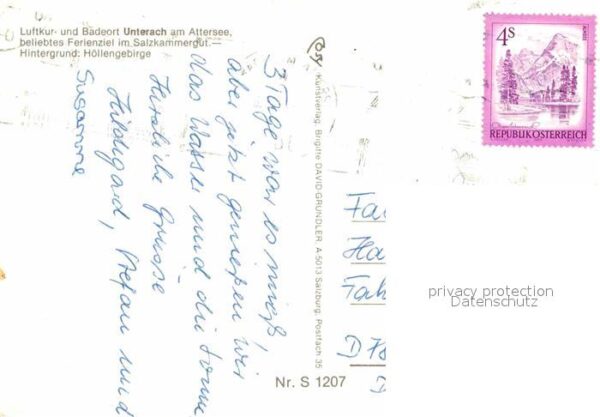 Luftkur- und Badeort Unterach am Attersee,
beliebtes Ferienziel im Salzkammergut.—
Hintergrund: Höllengebirge
3 Tage war es mies,
aber jetzt genießen wir
das Wasser und die Sonne
Herzliche Grüsse
Hildegard, Stefan und
Susanne
Cosy Kunstverlag Brigitte DAVID-GRÜNDLER, A-5013 Salzburg, Postfach 35
Nr. S 1207
4S
REPUBLIK ÖSTERREICH
Fa
Ha
Fah
D
privacy protection
Datenschutz